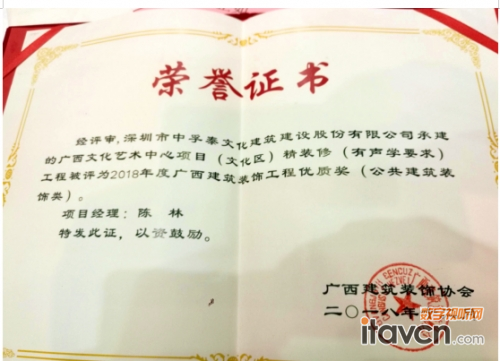 荣誉证书
经评审,深圳市中孚泰文化建筑建设股份有限公司承建
的广西文化艺术中心项目（文化区）精装修（有声学要求）
工程被评为2018年度广西建筑装饰工程优质奖（公共建筑装
饰类）。
项目经理：陈 林
特发此证，以资鼓励。
广西建筑装饰协会
二〇一八年
数字视听网
itavcn.com